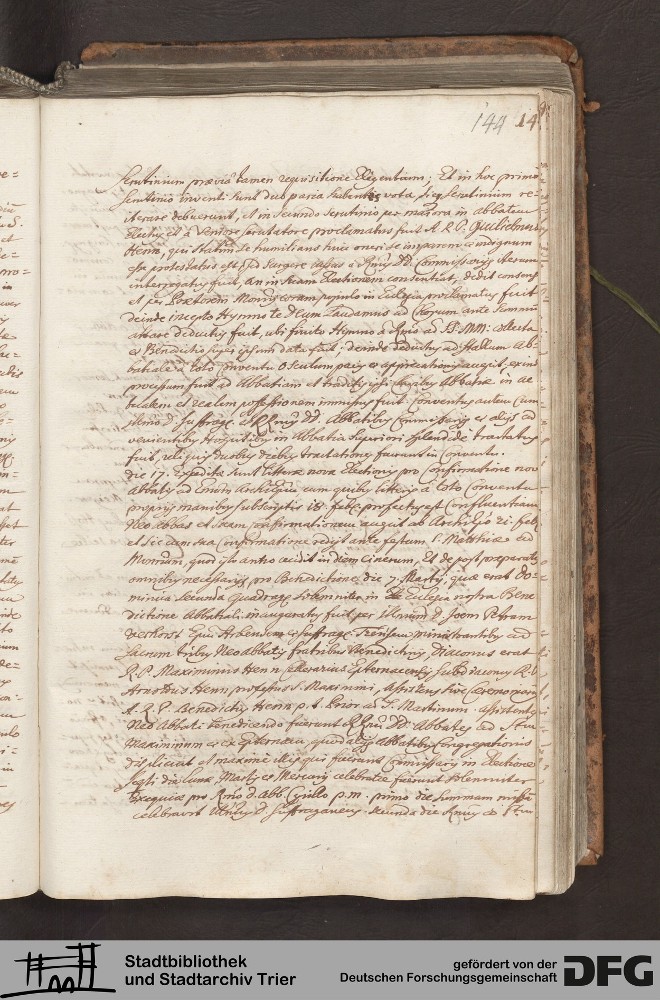 144 14
scrutinium prævia tamen requisitione Eligentium; Et in hoc primo
scrutinio inventi sunt duo paria habentes vota, sicq scrutinium re-
iterare debuerunt, et in secundo scrutinio per maiora in abbatem
Electus et a seniore scrutatore proclamatus fuit A. R. P. Guilielmus
Henn, qui statim se humilians huic oneri se imparem et indignum
esse protestatus est, sed surgere iussus a Rmis DD. Commissariis iterum
interrogatus fuit, an in suam Electionem consentiat, dedit consens
et per Prætorem Monrii coram populo in Ecclesia proclamatus fuit
deinde incepto Hymno te Deum Laudamus ad Chorum ante summum
altare deductus fuit, ubi finito Hymno a Rmo ad SS. MM: collecta
et Benedictio super ipsum data fuit; deinde deductus ad stallum Ab-
batialem a toto Conventu osculum pacis et apprecationes accepit, exinde
processum fuit ad Abbatiam et traditis ipsi clavibus Abbatiæ in ac
tualem et realem possessionem immissus fuit. Conventus autem cum
Illmo D. suffrag. et RRmis DD. Abbatibus Commissariis et aliis ad
venientibus Hospitibus in Abbatia superiori splendide tractatus
fuit, reliquis duobus diebus tractationes fuerunt in Conventu.
die 17. Expeditæ sunt litteræ novæ Electionis pro Confirmatione novi
Abbatis ad Emum Archiepiscopum cum quibus litteris a toto Conventu
propriis manibus subscriptis 18. feb. profectus est Confluentiam
Neo Abbas et suam Confirmationem accepit ab Archiepo 21. feb.
et sic cum sua Confirmatione rediit ante festum S. Matthiæ ad
Monrium, quod isto anno cecidit in diem Cinerum, Et depost præparatis
omnibus necessariis pro Benedictione, die 7. Martii, quæ erat Do-
minica secunda Quadrag. solemniter in Ecclesia nostra Bene
dictione Abbatiali inauguratus fuit per Illmum D. Joem Petrum
Verhorst Epum Arbensem et suffrag. Trevirensem ministrantibus ad
sacrum tribus Neo abbatis fratribus Benedictinis, Diaconus erat
R. P. Maximinus Henn Cellerarius Epternacensis, subdiaconus R. P.
Arnoldus Henn professus S. Maximini, assistens sive Ceremoniarius
A. R. P. Benedictus Henn p. t. Prior ad S. Martinum. assistentes
Neo Abbati benedicendo fuerunt RRmi DD. Abbates ad Stum
Maximinum et ex Epternaco, quod aliis Abbatibus Congregationis
displicuit et maxime illis qui fuerant Commissarii in Electione
sequenti die lunæ, Martis et Mercurii celebratæ fuerunt solemniter
Exequiæ pro Rmo D. Abb. Cyrillo p. m. primo die summam missam
celebravit Illmus D. suffraganeus, secunda die Rmus ad Stum
Stadtbibliothek
und Stadtarchiv Trier
gefördert von der
Deutschen Forschungsgemeinschaft
DFG